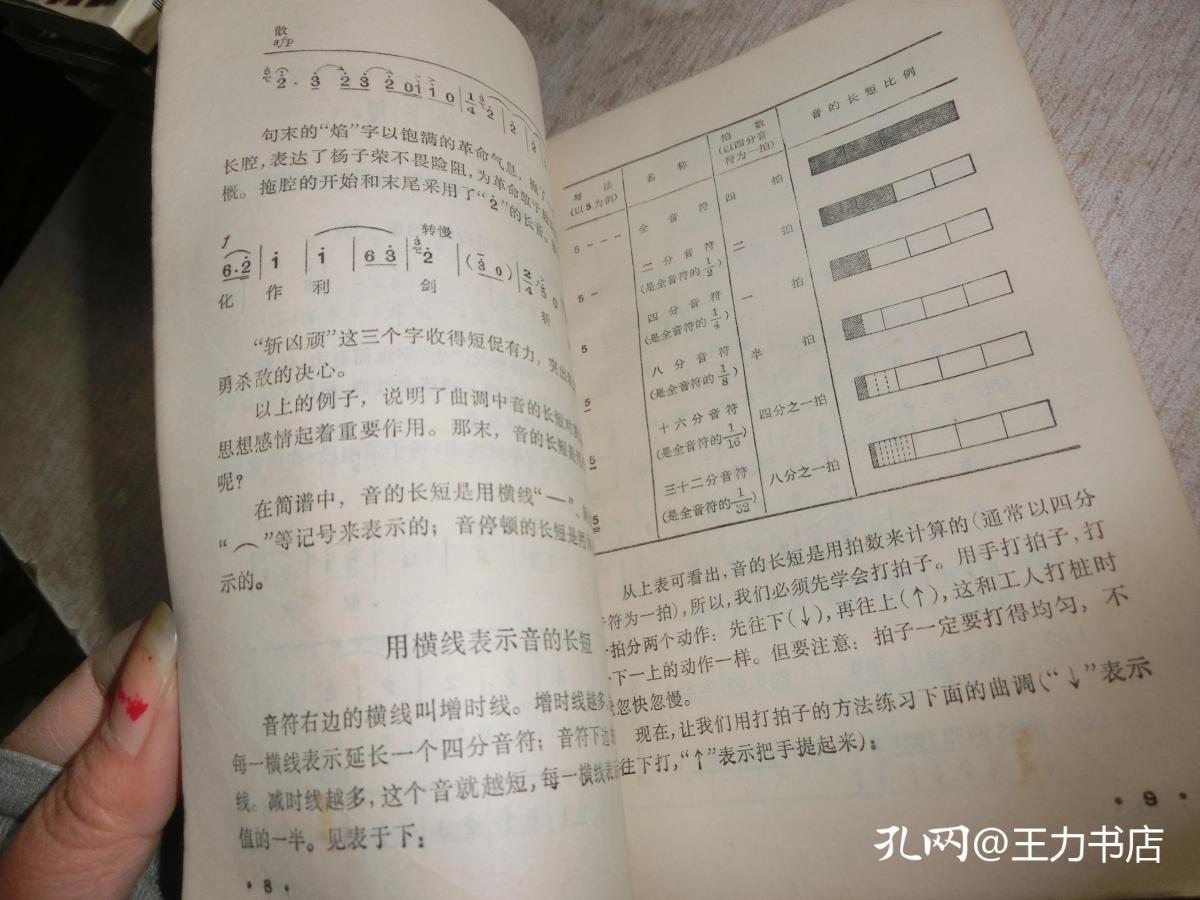 散
sfp
句末的“焰”字以饱满的革命气息，拖了
长腔，表达了杨子荣不畏险阻，为革命敢于
概。拖腔的开始和末尾采用了“2̇”的长音。
f 转慢
6·2̇ | 1̇ 1̇ 6 3̇ | 2̇ | (3̇ 0) | 2/4 5 0
化 作 利 剑 斩
“斩凶顽”这三个字收得短促有力，突出
勇杀敌的决心。
以上的例子，说明了曲调中音的长短对
思想感情起着重要作用。那末，音的长短是
呢？
在简谱中，音的长短是用横线“—”、
“⌒”等记号来表示的；音停顿的长短是用
示的。
用横线表示音的长短
音符右边的横线叫增时线。增时线越多，
每一横线表示延长一个四分音符；音符下边
线。减时线越多，这个音就越短，每一横线表示
值的一半。见表于下：
·8·
写法 名称 拍数 音的长短比例
(以5为例) (以四分音符为一拍)
5 - - - 全音符 四拍
5 - 二分音符 二拍
(是全音符的1/2)
5 四分音符 一拍
(是全音符的1/4)
5 八分音符 半拍
(是全音符的1/8)
5 十六分音符 四分之一拍
(是全音符的1/16)
5 三十二分音符 八分之一拍
(是全音符的1/32)
从上表可看出，音的长短是用拍数来计算的(通常以四分
符为一拍)，所以，我们必须先学会打拍子。用手打拍子，打
一拍分两个动作：先往下(↓)，再往上(↑)，这和工人打桩时
下一上的动作一样。但要注意：拍子一定要打得均匀，不
忽快忽慢。
现在，让我们用打拍子的方法练习下面的曲调(“↓”表示
往下打，“↑”表示把手提起来)：
·9·
孔网@王力书店